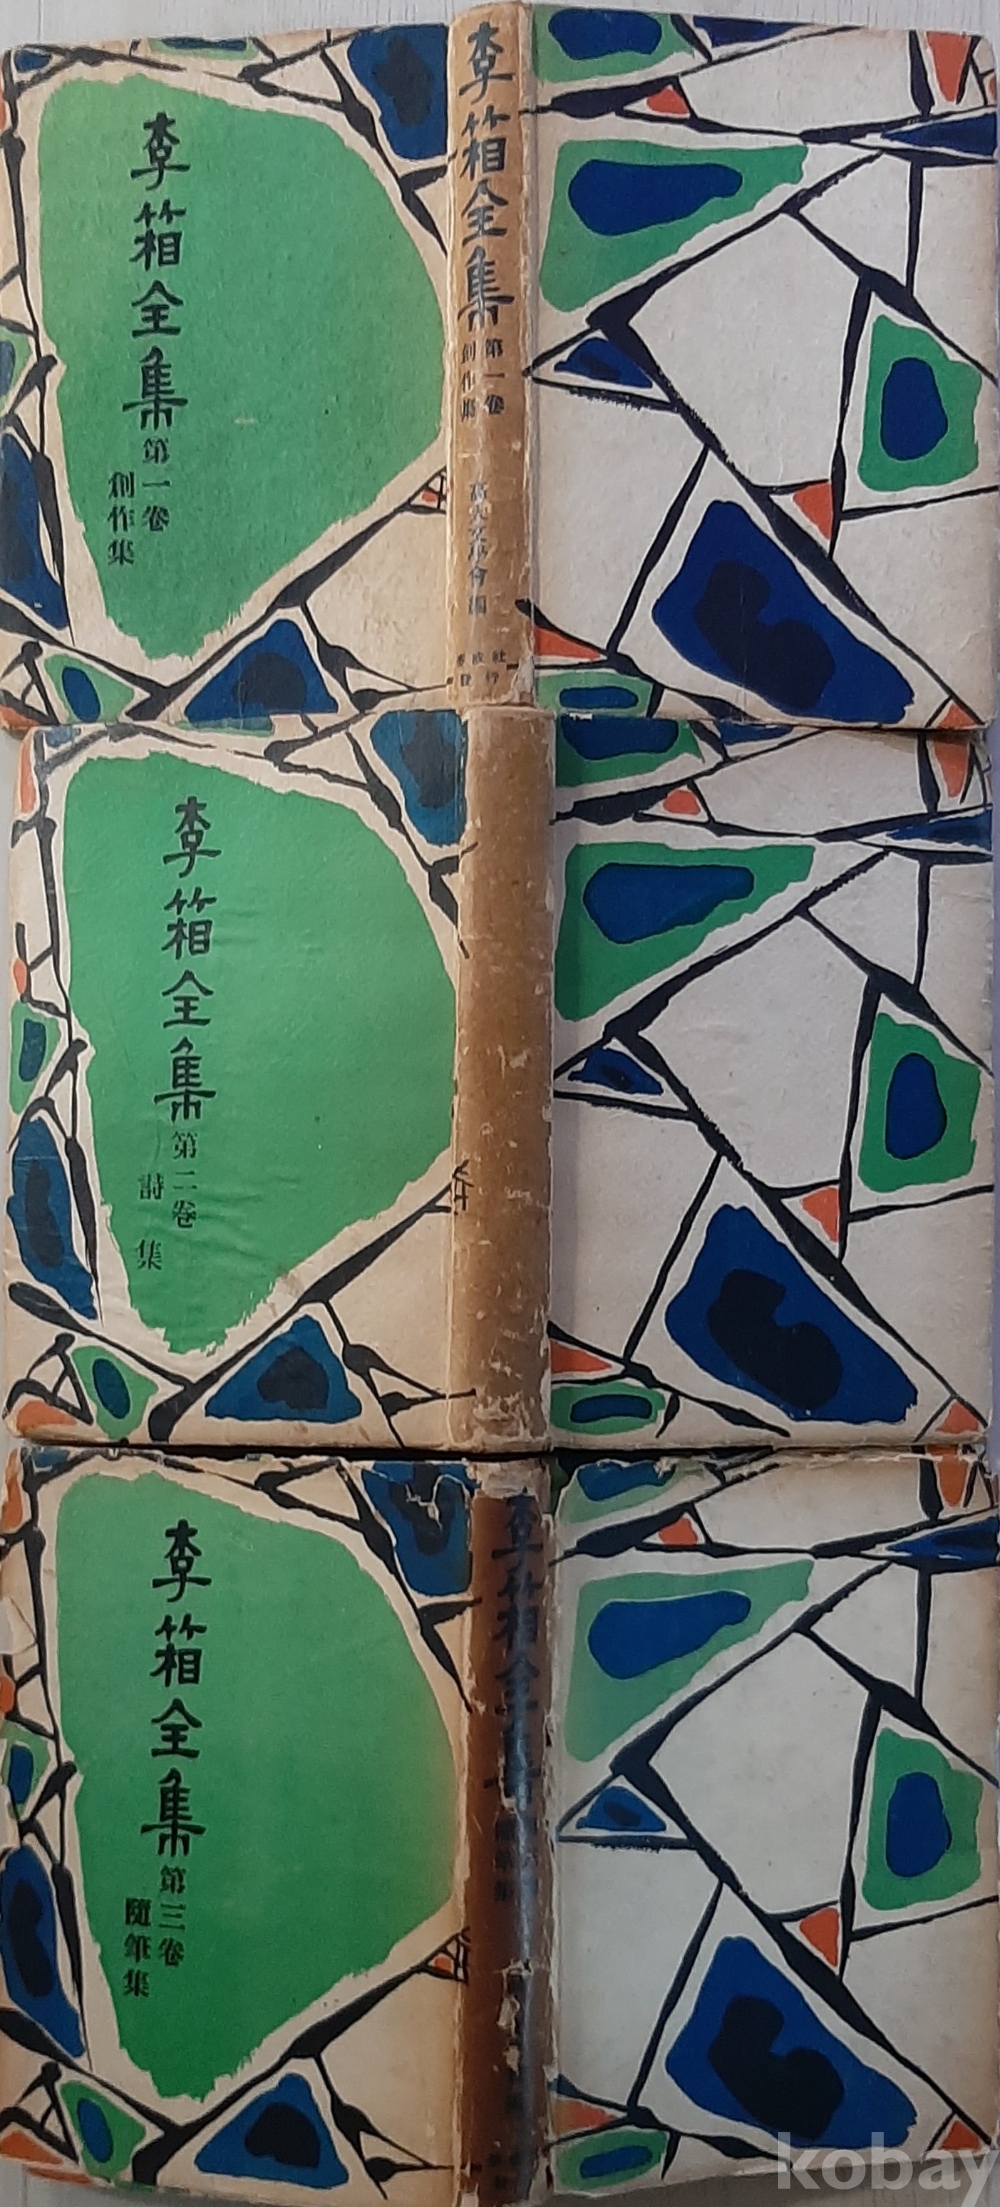 李箱全集
第一卷
創作集
李箱全集
第一卷
創作集
高大文學會 編
社
發行
李箱全集
第二卷
詩集
李箱全集
第三卷
隨筆集
李箱全
kobay